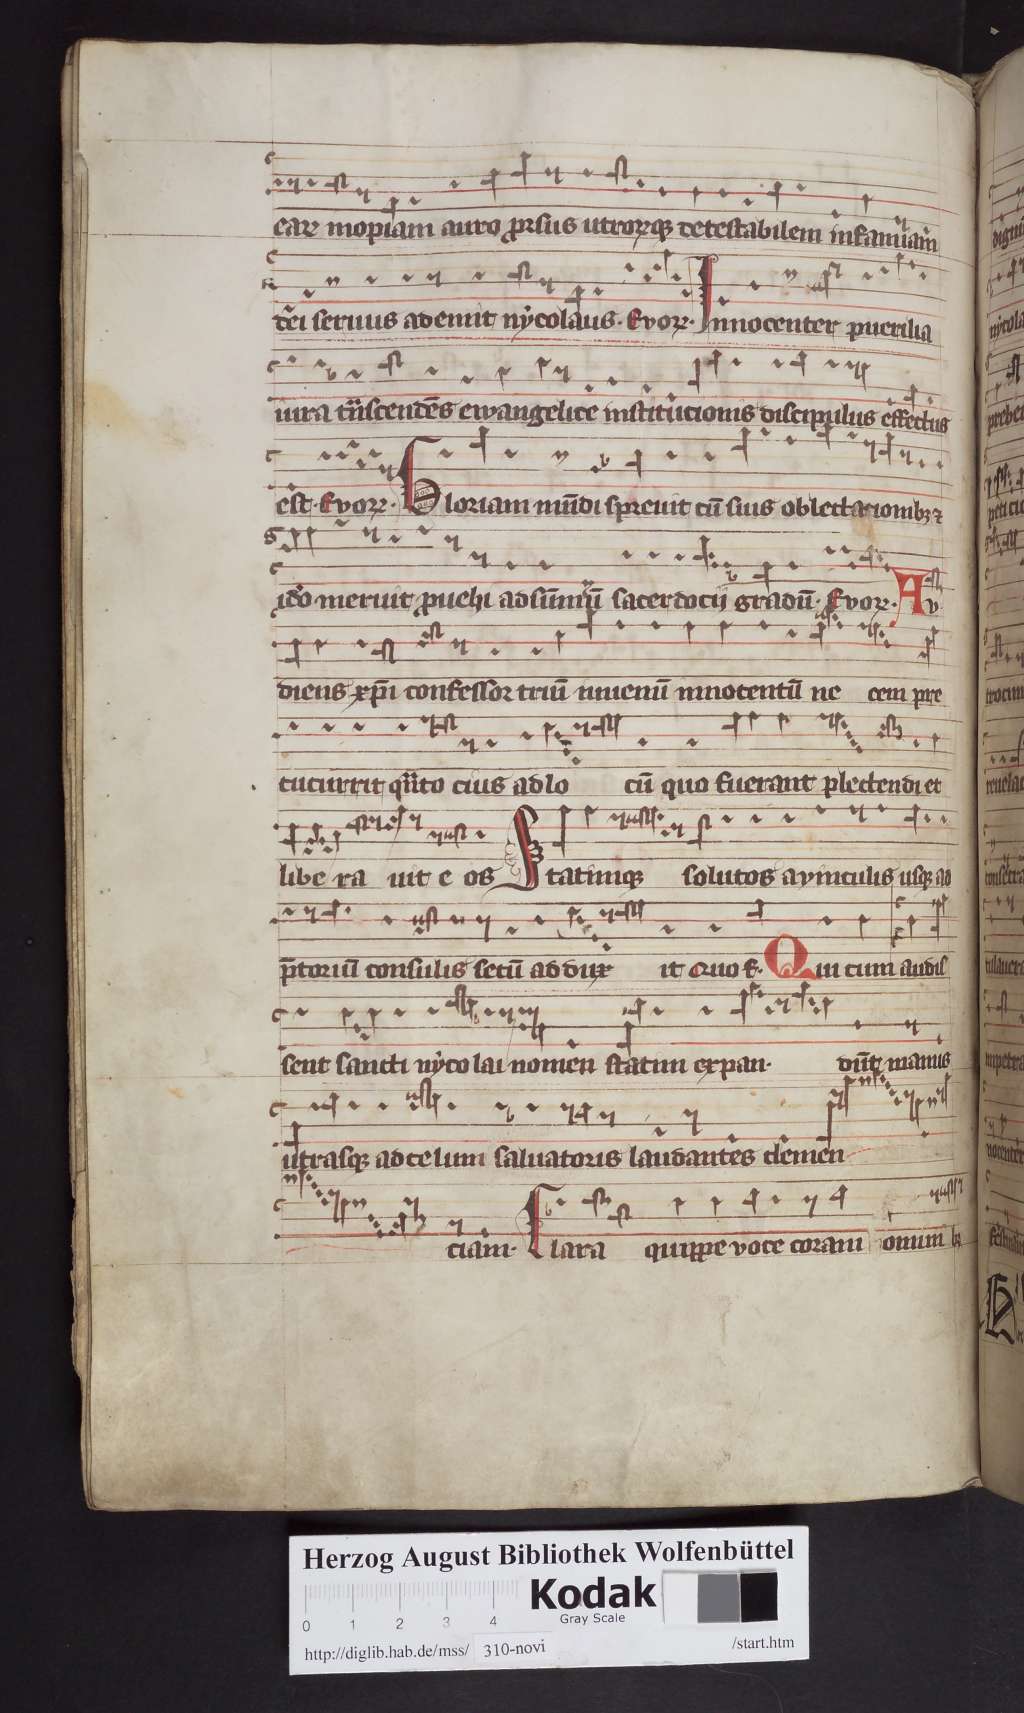 eaꝝ inopiam auro ꝓrsus utrorꝗꝫ detestabilem infamiam
dei seruus ademit nycolaus. Evoꝝ. Innocenter puerilia
iura tͣnscendēs ewangelice institucionis discipulus effectus
est. Evoꝝ. Gloriam mūdi spreuit cū suis oblectacionibꝫ ⁊
ido meruit ꝓuehi ad sūmū sacerdocii gradū. Evoꝝ. Au
diens xp̄i confessor triū iuuenū innocentū ne cem pre
cucurrit q̇to cius ad lo cū quo fuerant plectendi et
libe ra uit e os Statimqꝫ solutos a uinculis usqꝫ ad
p̄torium consulis secū ad dux it Quo f. Qui cum audis
sent sancti nycolai nomen statim expan. dūt manus
utrasqꝫ ad celum saluatoris laudantes clemen
ciam. Clara quippe voce coram omnibꝫ
Herzog August Bibliothek Wolfenbüttel
Kodak
Gray Scale
0 1 2 3 4
http://diglib.hab.de/mss/ 310-novi /start.htm